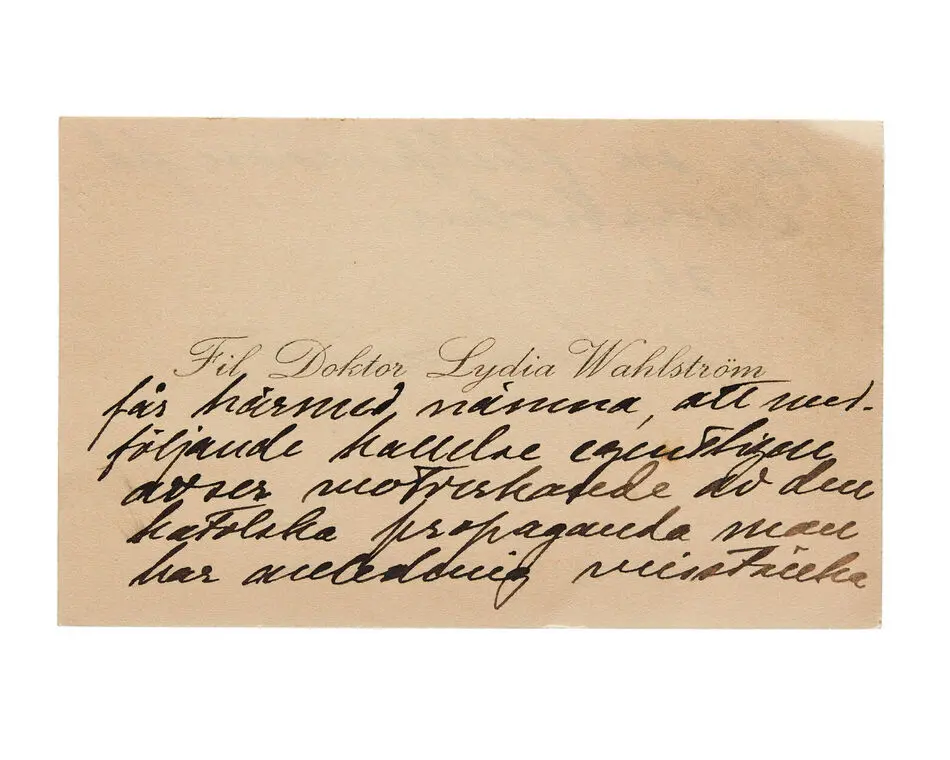 Fil Doktor Lydia Wahlström
får härmed nämna, att med-
följande kallelse egentligen
avser motverkande av den
katolska propaganda man
har anledning misstänka